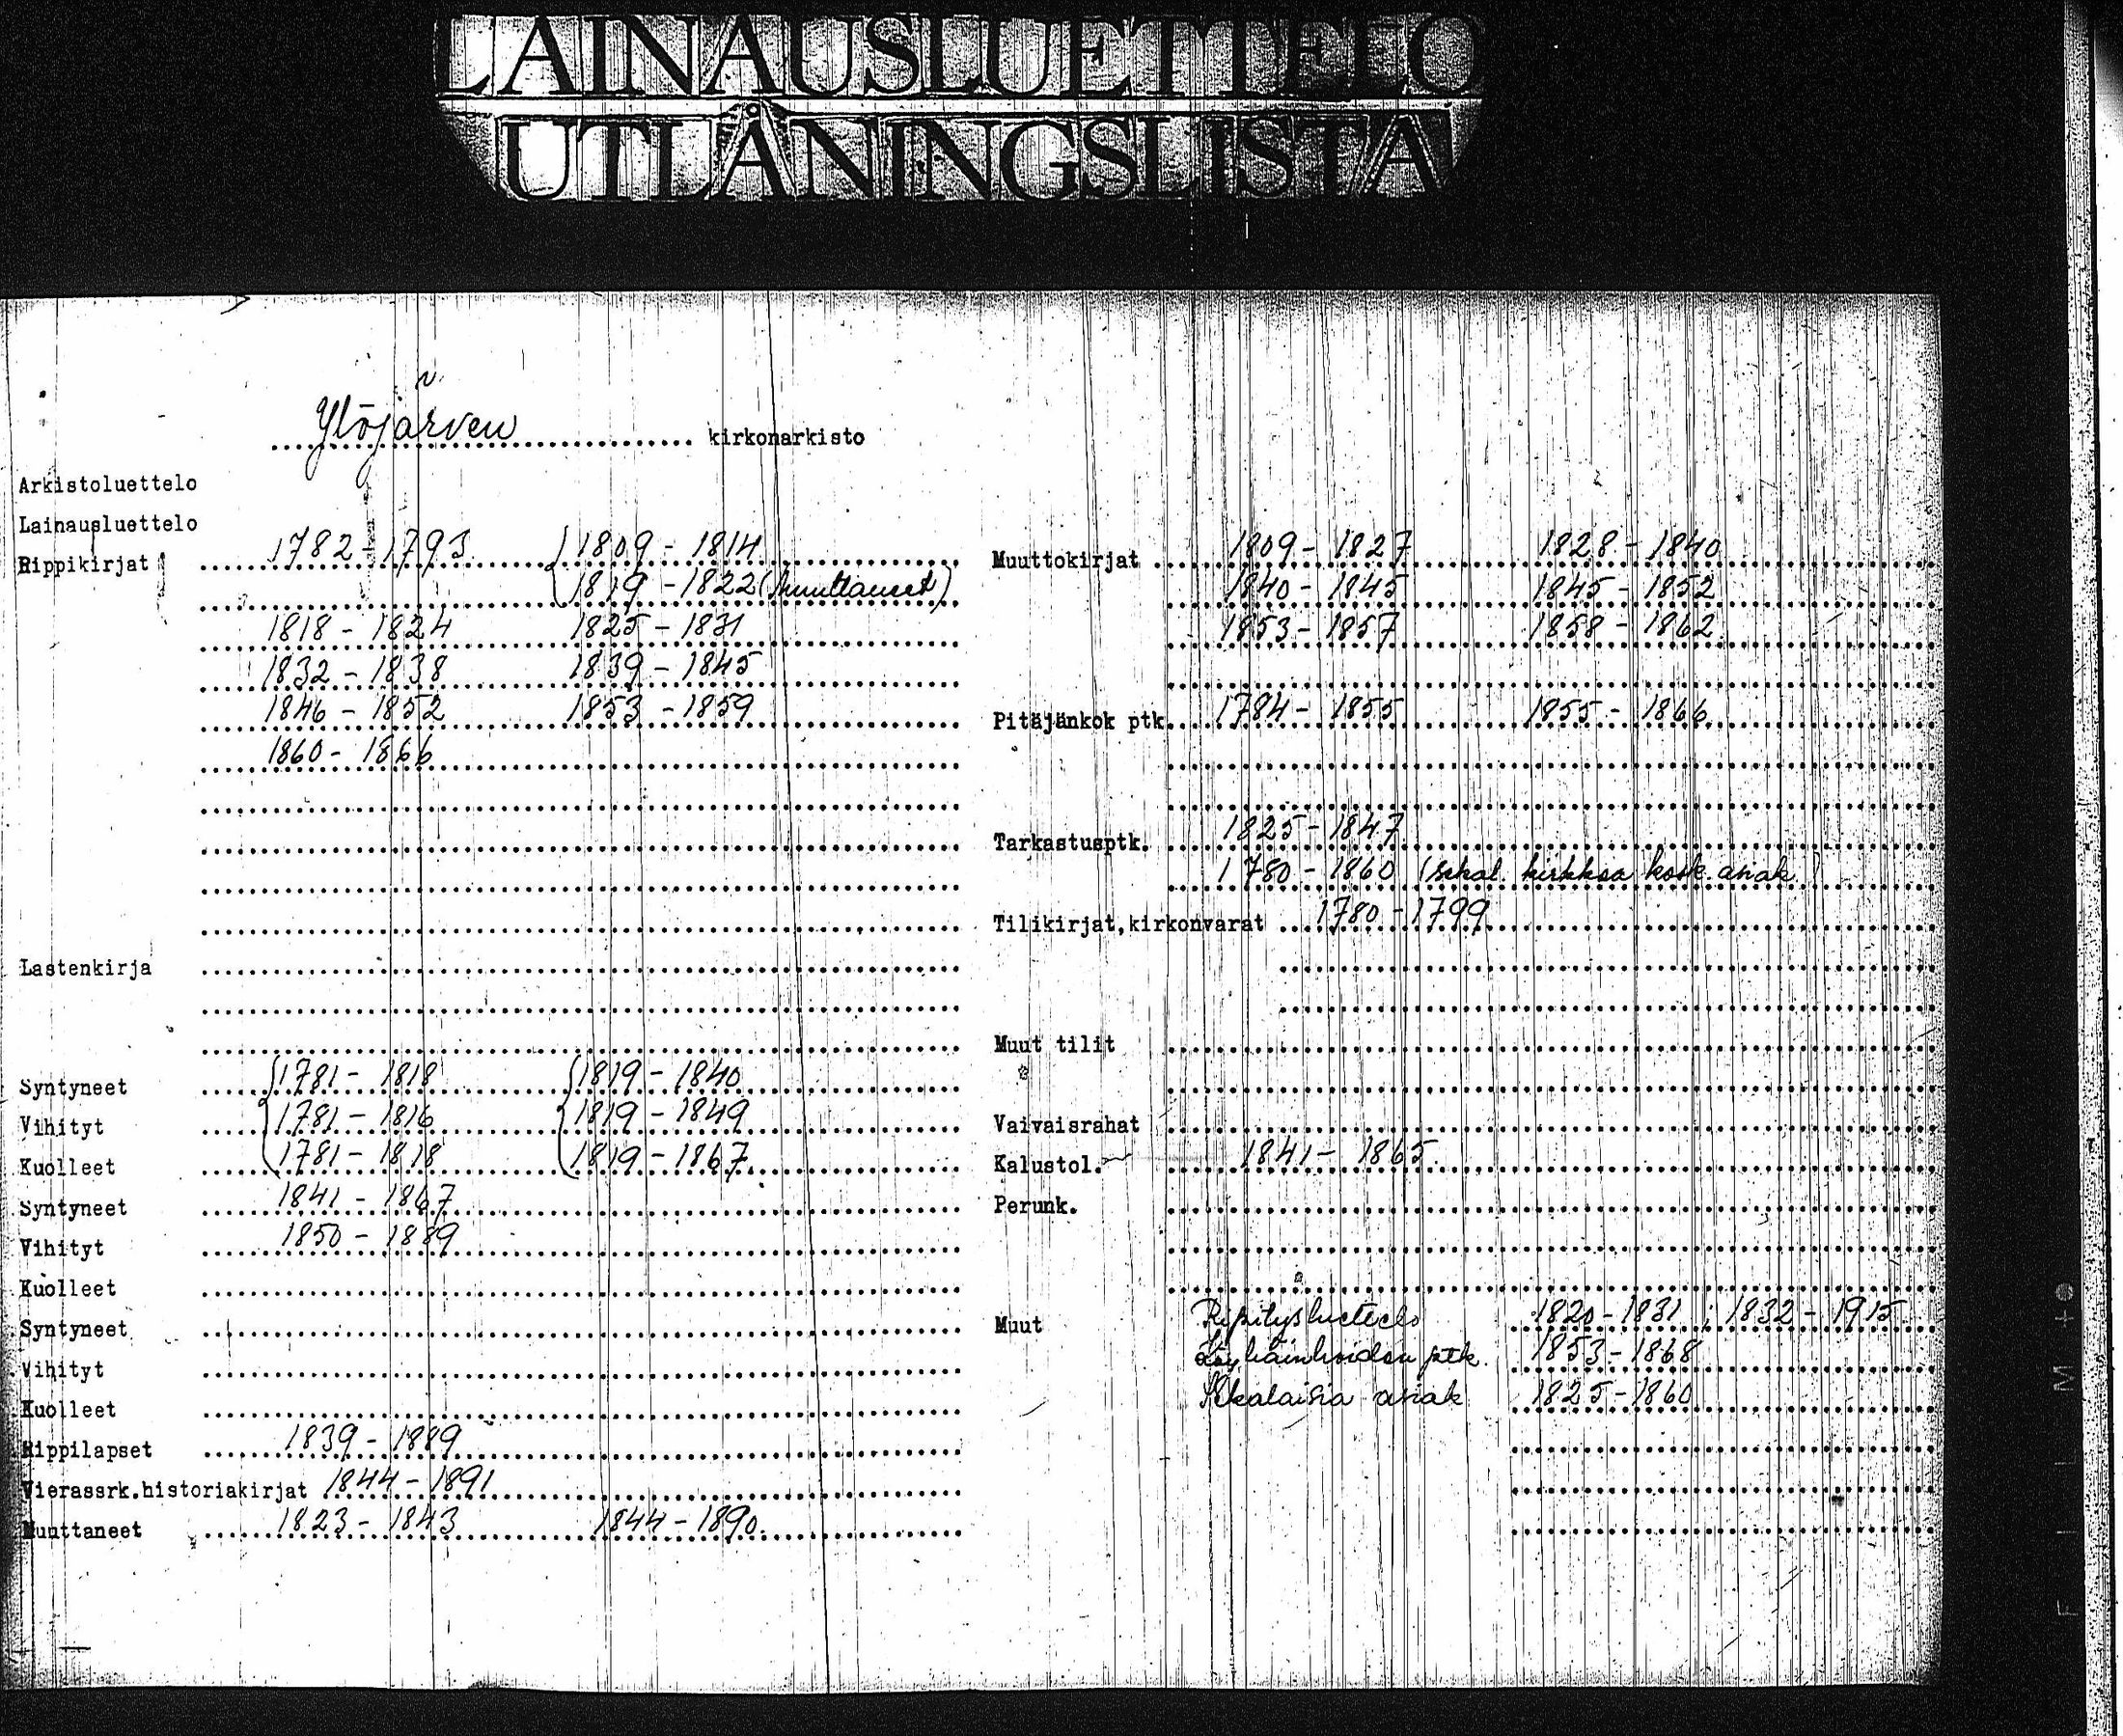 LAINAUSLUETTELO
UTLÅNINGSLISTA
Ylöjärven kirkonarkisto
Arkistoluettelo
Lainausluettelo
Rippikirjat 1782-1793 1809-1814
1819-1822 (muuttaneet)
1818-1824 1825-1831
1832-1838 1839-1845
1846-1852 1853-1859
1860-1866
Lastenkirja
Syntyneet 1781-1818 1819-1840
Vihityt 1781-1816 1819-1849
Kuolleet 1781-1818 1819-1867
Syntyneet 1841-1867
Vihityt 1850-1889
Kuolleet
Syntyneet
Vihityt
Kuolleet
Rippilapset 1839-1889
Vierassrk.historiakirjat 1844-1891
Muuttaneet 1823-1843 1844-1890
Muuttokirjat 1809-1827 1828-1840
1840-1845 1845-1852
1853-1857 1858-1862
Pitäjänkok ptk. 1784-1855 1855-1866
Tarkastusptk. 1825-1847
1780-1860 (sekal. kirkkoa kosk. asiak.)
Tilikirjat,kirkonvarat 1780-1799
Muut tilit
Vaivaisrahat
Kalustol. 1841-1865
Perunk.
Muut Ripitysluettelo 1820-1831; 1832-1915
ptk. 1853-1868
asiak 1825-1860
FILM